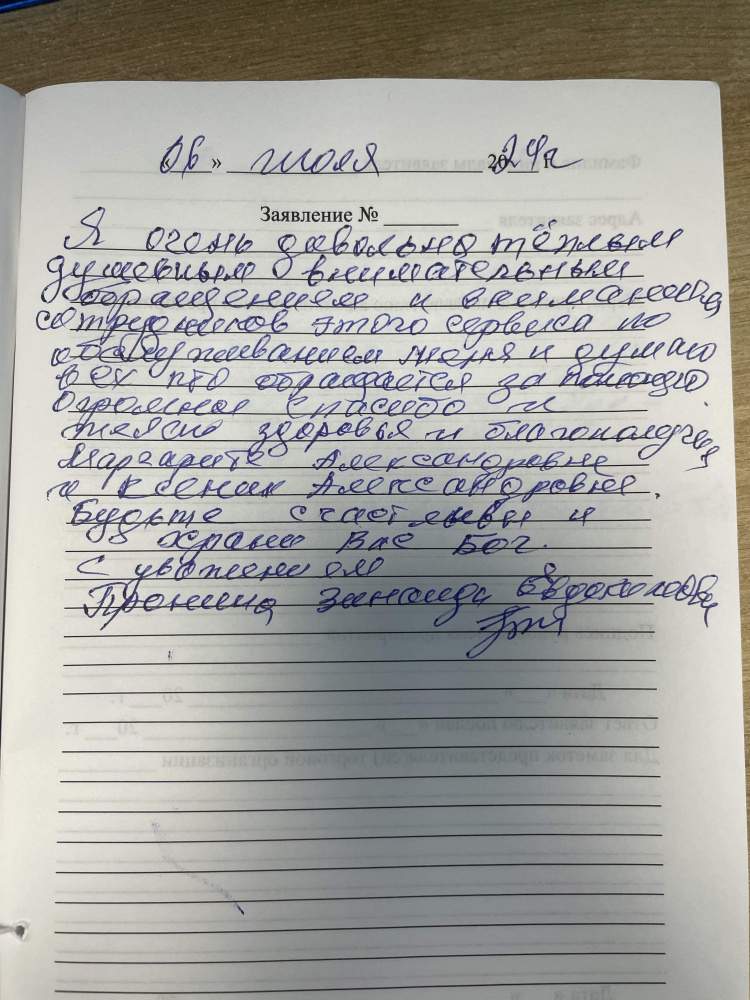 «06» июля 2024 г
Заявление №
Я очень довольна тёплым
душевным внимательным
обращением и вниманием
сотрудников этого сервиса по
обслуживанием меня и думаю
всех кто обращается за помощью.
Огромное спасибо и
желаю здоровья и благополучия
Маргарите Александровне
и Ксении Александровне.
Будьте счастливы и
храни Вас Бог.
С уважением
Пронина Зинаида